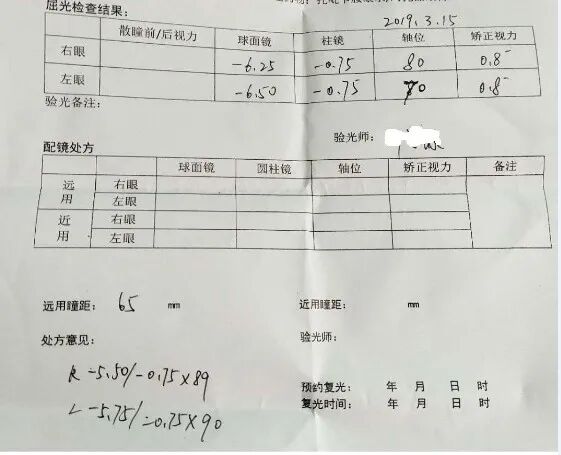 屈光检查结果：
2019.3.15
散瞳前/后视力 球面镜 柱镜 轴位 矫正视力
右眼 -6.25 -0.75 80 0.8⁻
左眼 -6.50 -0.75 70 0.8⁻
验光备注：
验光师：
配镜处方
球面镜 圆柱镜 轴位 矫正视力 备注
远用 右眼
左眼
近用 右眼
左眼
远用瞳距： 65 mm 近用瞳距： mm
处方意见： 验光师：
R -5.50/-0.75×89
L -5.75/-0.75×90
预约复光： 年 月 日 时
复光时间： 年 月 日 时